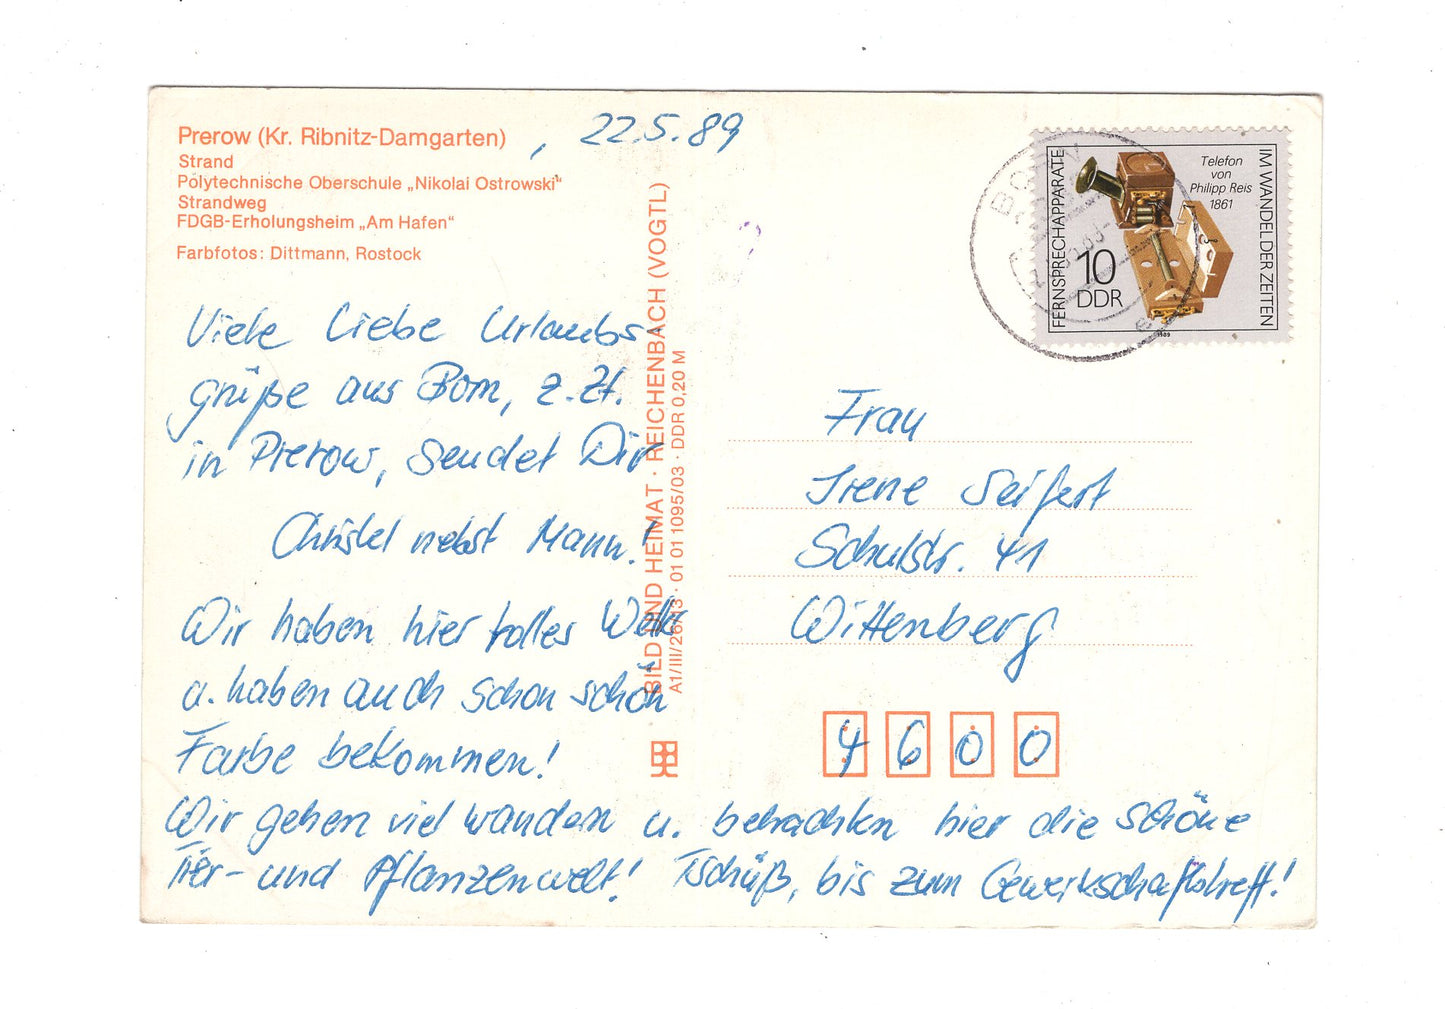 Prerow (Kr. Ribnitz-Damgarten)
, 22.5.89
Strand
Polytechnische Oberschule „Nikolai Ostrowski“
Strandweg
FDGB-Erholungsheim „Am Hafen“
Farbfotos: Dittmann, Rostock
Viele liebe Urlaubs-
grüße aus Born, z. Zt.
in Prerow, sendet Dir
Christel nebst Mann!
Wir haben hier tolles Wetter
u. haben auch schon schön
Farbe bekommen!
Wir gehen viel wandern u. betrachten hier die schöne
Tier- und Pflanzenwelt! Tschüß, bis zum Gewerkschaftstreff!
BILD UND HEIMAT · REICHENBACH (VOGTL)
A1/III/26/13 · 01 01 1095/03 · DDR 0,20 M
FERNSPRECHAPPARATE
IM WANDEL DER ZEITEN
Telefon
von
Philipp Reis
1861
10
DDR
1989
Frau
Irene Seifert
Schulstr. 41
Wittenberg
4600